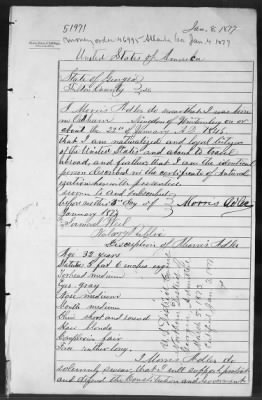 51971
Jan. 8. 1877
money order 46995 Atlanta Ga Jan 4 1877
United States of America
State of Georgia
Fulton County
I Morris Adler do swear that I was born
in Kingdom of on or
about the day of January A.D. 1845,
that I am naturalized and loyal citizen
of the United States and about to travel
abroad, and further that I am the identical
person described in the certificate of natural
ization herewith presented
Sworn to and subscribed
before me this 3d day of Morris Adler
January 1877
Samuel Weil
Notary Public
Description of Morris Adler
Age 32 years
Stature 5 feet 6 inches
Forehead medium
Eyes gray
Nose medium
Mouth medium
Chin short and round
Hair blonde
Complexion fair
Face rather long.
U.S. District Court
Northern District of
Georgia
March 5, 1873
Jan 1877
I Morris Adler do
solemnly swear that I will support protect
and defend the Constitution and Government